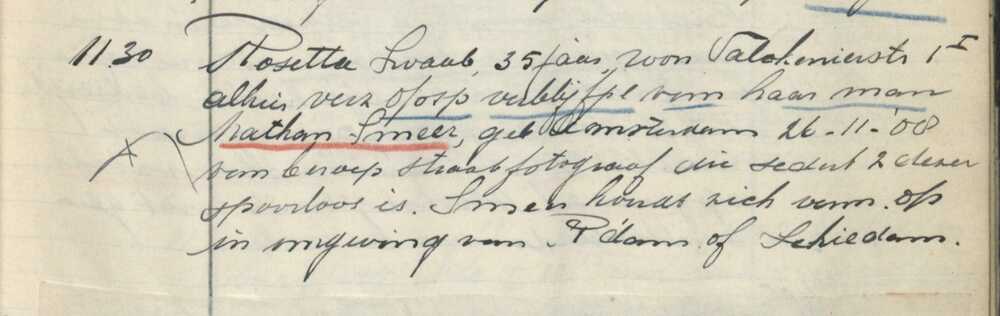 11.30 Rosetta Swaab, 35 jaar, won Valckenierstr 1 I
alhier verz opsp verblijfpl van haar man
Nathan Smeer, geb Amsterdam 26-11-'08
van beroep straatfotograaf die sedert 2 dezer
spoorloos is. Smeer houdt zich verm. op
in omgeving van R'dam of Schiedam.